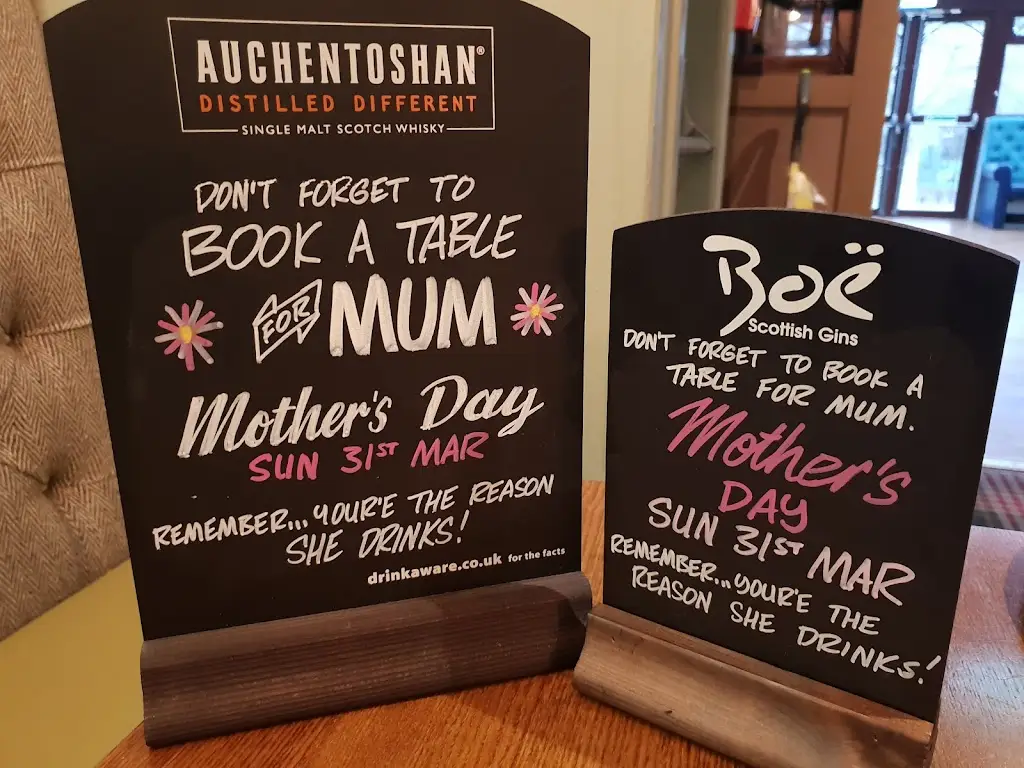 AUCHENTOSHAN®
DISTILLED DIFFERENT
SINGLE MALT SCOTCH WHISKY
DON'T FORGET TO
BOOK A TABLE
FOR MUM
Mother's Day
SUN 31ST MAR
REMEMBER... YOUR'E THE REASON
SHE DRINKS!
drinkaware.co.uk for the facts
Boë
Scottish Gins
DON'T FORGET TO BOOK A
TABLE FOR MUM.
Mother's
DAY
SUN 31ST MAR
REMEMBER... YOUR'E THE
REASON SHE DRINKS!